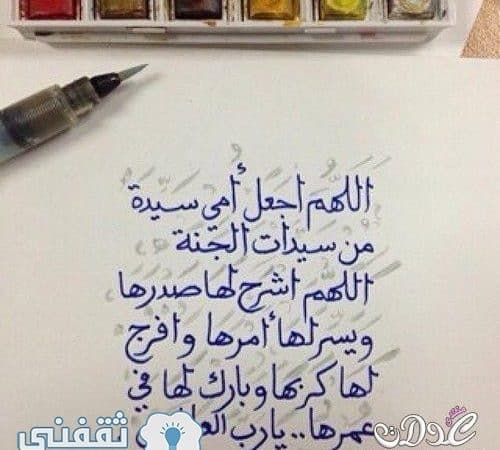 اَللَّهُمَ اجعل أُمي سَيِدَةٌ
من سيدات الجنة
اللَّهُمَ اشرح لها صَدرَها
وَيَسر لها أمرها وافرج
لها كربها وبارك لها في
عمرها.. يارب
ثقفني